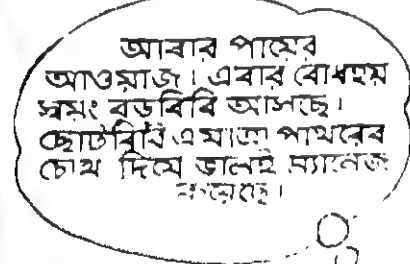 আবার পায়ের
আওয়াজ। এবার বোধহয়
স্বয়ং বড়বিবি আসছে।
ছোটবিবি এ যাত্রা পাথরের
চোখ দিয়ে ভালই ম্যানেজ
করেছে।